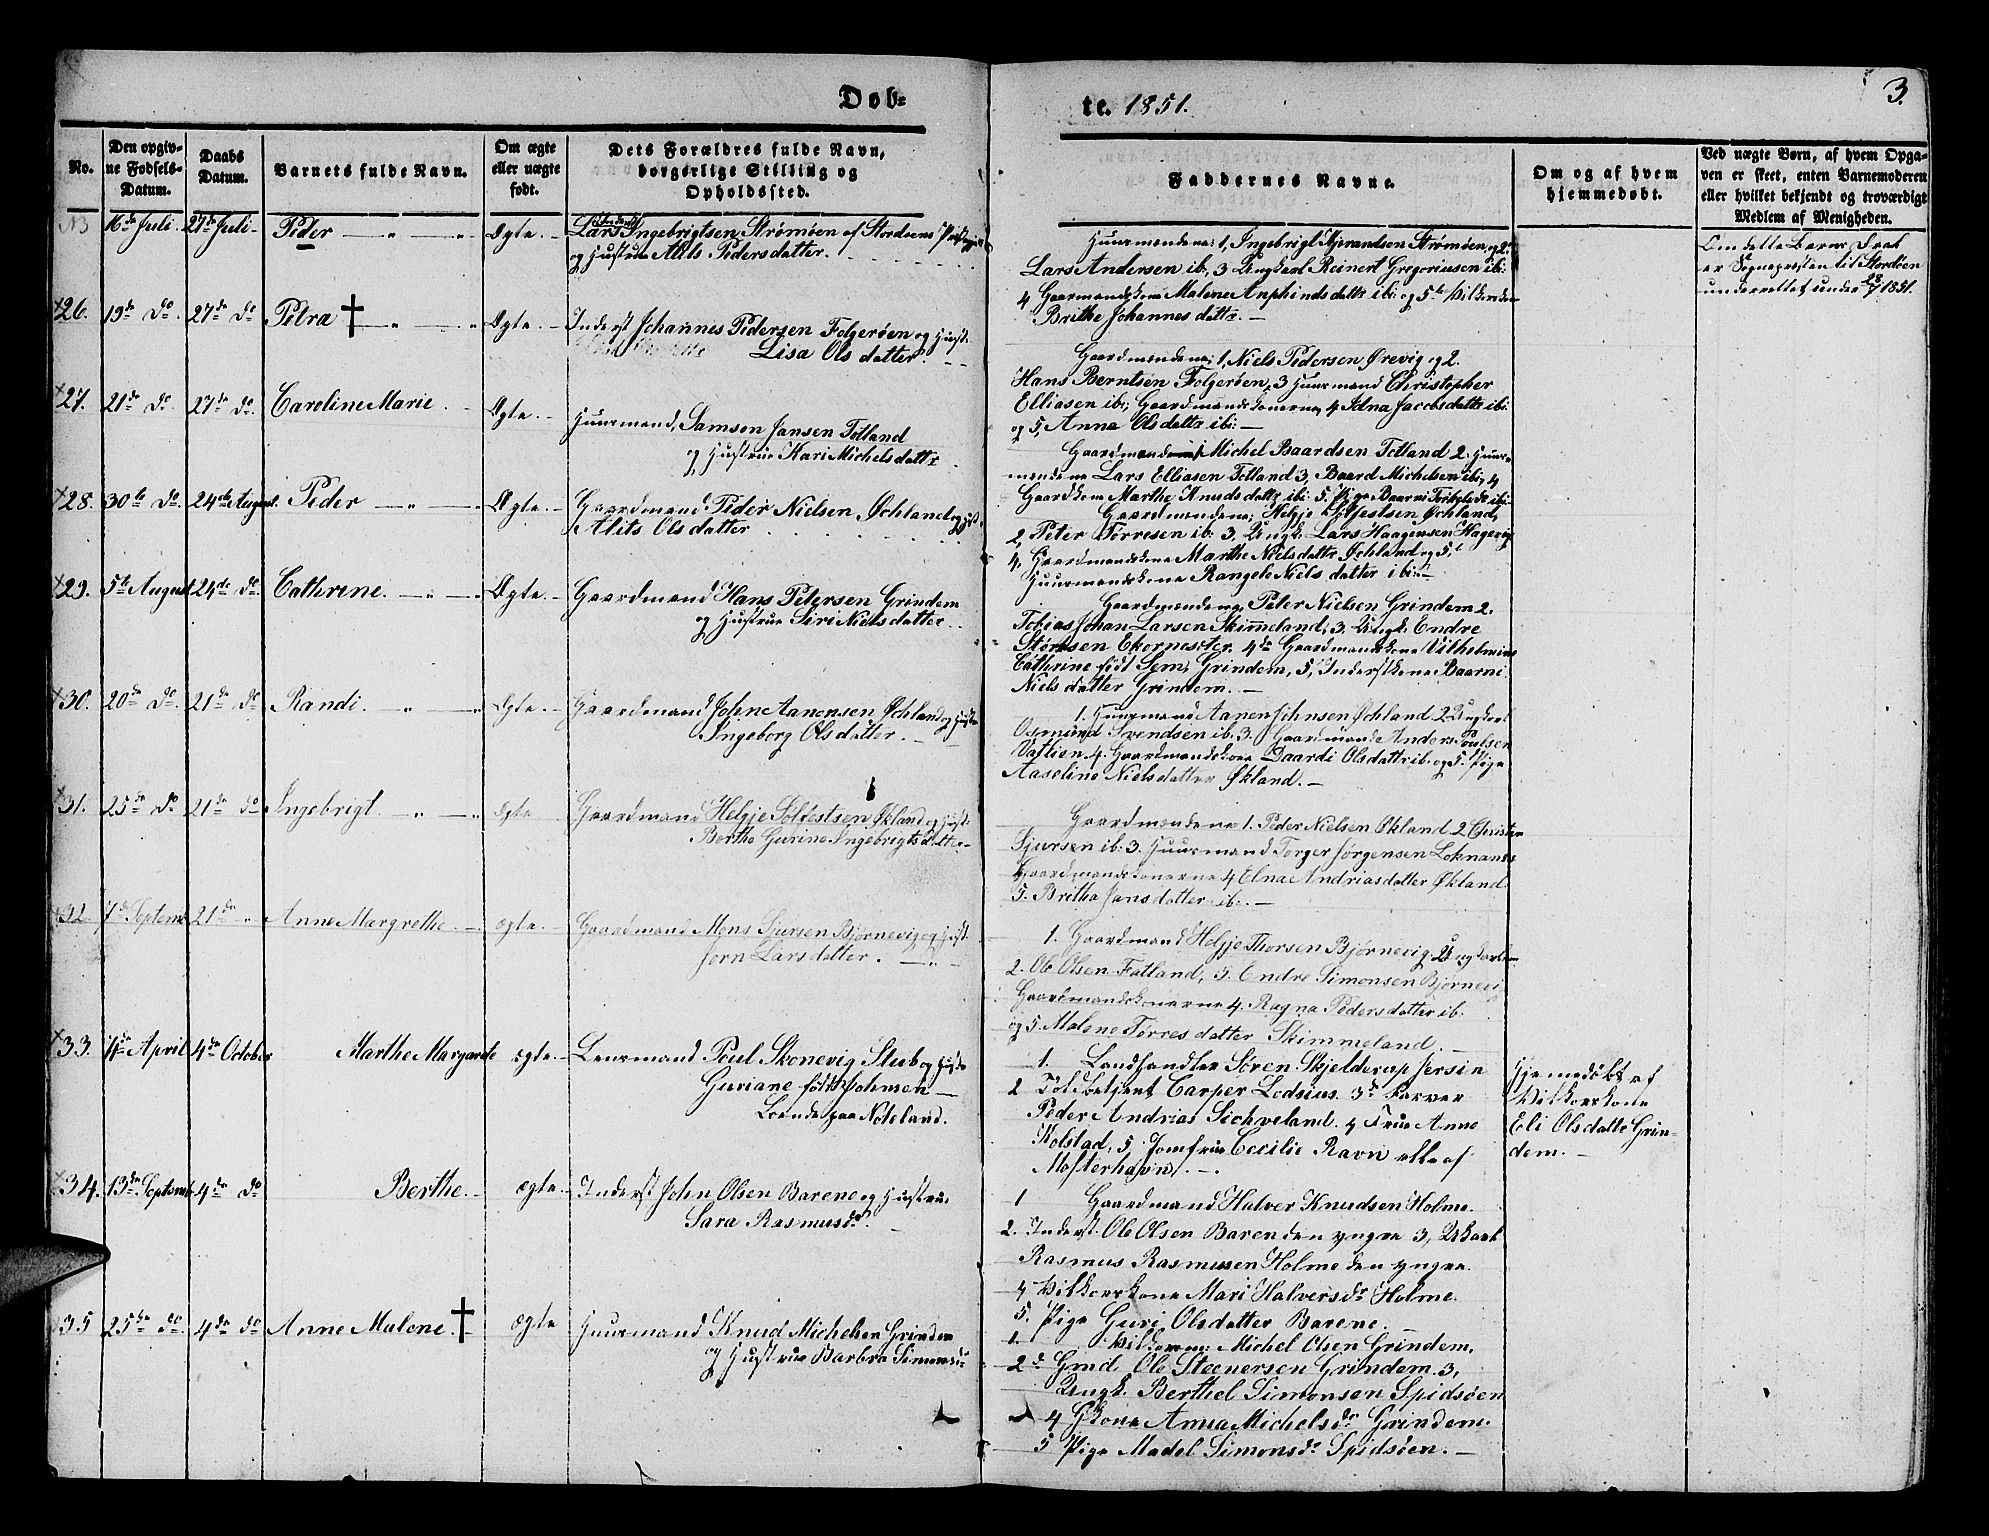 Døb-
te. 1851.
3.
No.
Den opgiv-
ne Fødsels-
Datum.
Daabs
Datum.
Barnets fulde Navn.
Om ægte
eller uægte
født.
Dets Forældres fulde Navn,
borgerlige Stilling og
Opholdssted.
Faddernes Navne.
Om og af hvem
hjemmedøbt.
Ved uægte Børn, af hvem Opga-
ven er skeet, enten Barnemoderen
eller hvilket bekjendt og troværdigt
Medlem af Menigheden.
16de Juli. 27de Juli. Peder Ægte. Lars Ingebrigtsen Strømøen af Stordøens
og Hustrue Alits Pedersdatter.
Huusmændene: 1, Ingebrigt Strømøen, og 2.
Lars Andersen ib, 3 Ungkarl Reinert Gregoriusen ib:
4 Gaardmandskone Malene Anphindsdattr ib: og 5te
Brithe Johannesdattr.
Om dette Barns Daab
er Sognepresten til Stordøen
underrettet under 28/7 1851.
26. 19de do. 27de do Petra † Ægte. Inderst Johannes Pedersen Folgerøen og Hust.
Lisa Olsdatter.
Gaardmændene: 1, Niels Pedersen Ørevig og 2.
Hans Berntsen Folgerøen, 3 Huusmand Christopher
Elliasen ib:, Gaardmandskonerne, 4 Edna Jacobsdattr ib:
og 5, Anna Olsdattr ib:
27. 21de do. 27de do. Caroline Marie Ægte. Huusmand, Samson Jansen Fotland
og Hustrue Kari Michelsdattr
Gaardmand 1 Michel Baardsen Fotland 2. Huus-
mændene Lars Elliasen Fotland 3, Baard Michelsen ib:, 4
Gaardkone Marthe Knudsdattr ib: 5. Pige Baarni
28. 30te do. 24de August. Peder Ægte. Gaardmand Peder Nielsen Øchland og Hst.
Alits Olsdatter
Gaardmændene; Helje Sølfestsen Øchland,
2, Peter Tørresen ib: 3. Ungk: Lars Haagensen Hagevig
4, Gaardmandskone Marthe Nielsdattr Øchland og 5,
Huusmandskone Rangele Nielsdatter ib:
29. 5te August 24de do. Cathrine. Ægte. Gaardmand Hans Petersen Grindem
og Hustrue Siri Nielsdattr
Gaardmændene Peter Nielsen Grindem 2.
Tobias Johan Larsen Skimmeland, 3. Ungk. Endre
Størksen Ekornesæter. 4de Gaardmandskone Vilhelmine
Cathrine født Sem, Grindem, 5, Inderstkone Baarni
Nielsdatter Grindem.
30. 20de do. 21de do Randi. Ægte. Gaardmand John Aanensen Øchland og Hust
Ingeborg Olsdatter.
1. Huusmand Aanen Johnsen Øchland. 2 Ungkarl
Osmund Svendsen ib. 3. Gaardmand Anders Poulsen
Vatlien 4. Gaardmandskone Daardi Olsdattr ib. og 5. Pige
Aaseline Nielsdatter Økland.
31. 25de do 21de do Ingebrigt. ægte Gaardmand Helje Sølfestsen Økland og Hust.
Berthe Gurine Ingebrigtsdatter
Gaardmændene 1. Peder Nielsen Økland 2 Christen
Sjursen ib. 3. Huusmand Torger Jørgensen Loknanes
Gaardmandskonerne 4 Elna Andriasdatter Økland
5. Britha Jansdatter ib:.
32. 7de Septemb. 21de Anne Margrethe. ægte. Gaardmand Mons Sjursen Bjørnevig og Hust.
Jorn Larsdatter.
1. Gaardmand Helje Thorsen Bjørnevig. Ungkarlene
2. Ole Olsen Fatland, 3. Endre Simonsen Bjørnevi
Gaardmandskonerne 4. Ragna Pedersdatter ib.
og 5. Malene Tørresdatter Skimmeland.
33. April 4de October Marthe Margarete ægte. Lensmand Poul Skonevig Stub og Hust
Guriane født Johnsen
Boende paa Noteland.
1. Landhandler Søren Skjelderup Jersin
2 Toldbetjent Carper Ledsius. 3de Farver
Peder Andrias Sichveland. 4 Frue Anne
Kolstad, 5. Jomfrue Cecilie Ravn alle af
Mosterhavn.
Hjemmedøbt af
Vilkorskone
Eli Olsdattr Grin-
dem.
34. 13de Septemb 4de do Berthe. ægte. Inderst John Olsen Barene og Hustrue,
Sara Rasmusdr.
1 Gaardmand Halver Knudsen Holme.
2. Inderst. Ole Olsen Baren den yngre 3, Ukarl
Rasmus Rasmusen Holme den yngre.
4 Vilkorskone Mari Halversdr Holme.
5. Pige Guri Olsdatter Barene.
35 25de do. 4de do Anne Malene † ægte Huusmand Knud Michelsen Grindem
og Hustrue Barbra Simonsdr
1. Michel Olsen Grindem,
2de Gmd. Ole Steenersen Grindem 3,
Ungk. Berthel Simonsen Spidsøen
4 Gkone Anna Michelsdr Grindem.
5 Pige Madel Simonsdr Spidsøen.